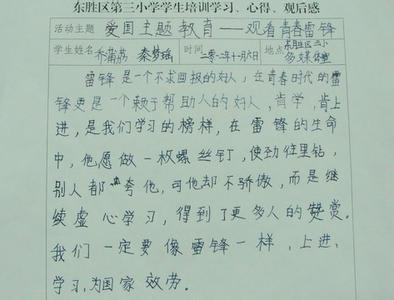 东胜区第三小学学生培训学习、心得、观后感
活动主题 爱国主题教育——观看青春雷锋
学生姓名 乔蒲荔 秦梦瑶 时间 二零一二年十一月六日 地点 东胜区三小多媒体室
雷锋是一个不求回报的好人,在青春时代的雷
锋更是一个赖于帮助人的好人,肯学,肯上
进,是我们学习的榜样,在雷锋的生命
中,他愿做一枚螺丝钉,使劲往里钻,
别人都夸他,可他却不骄傲,而是继
续虚心学习,得到了更多人的赞赏。
我们一定要像雷锋一样,上进,
学习,为国家效劳。